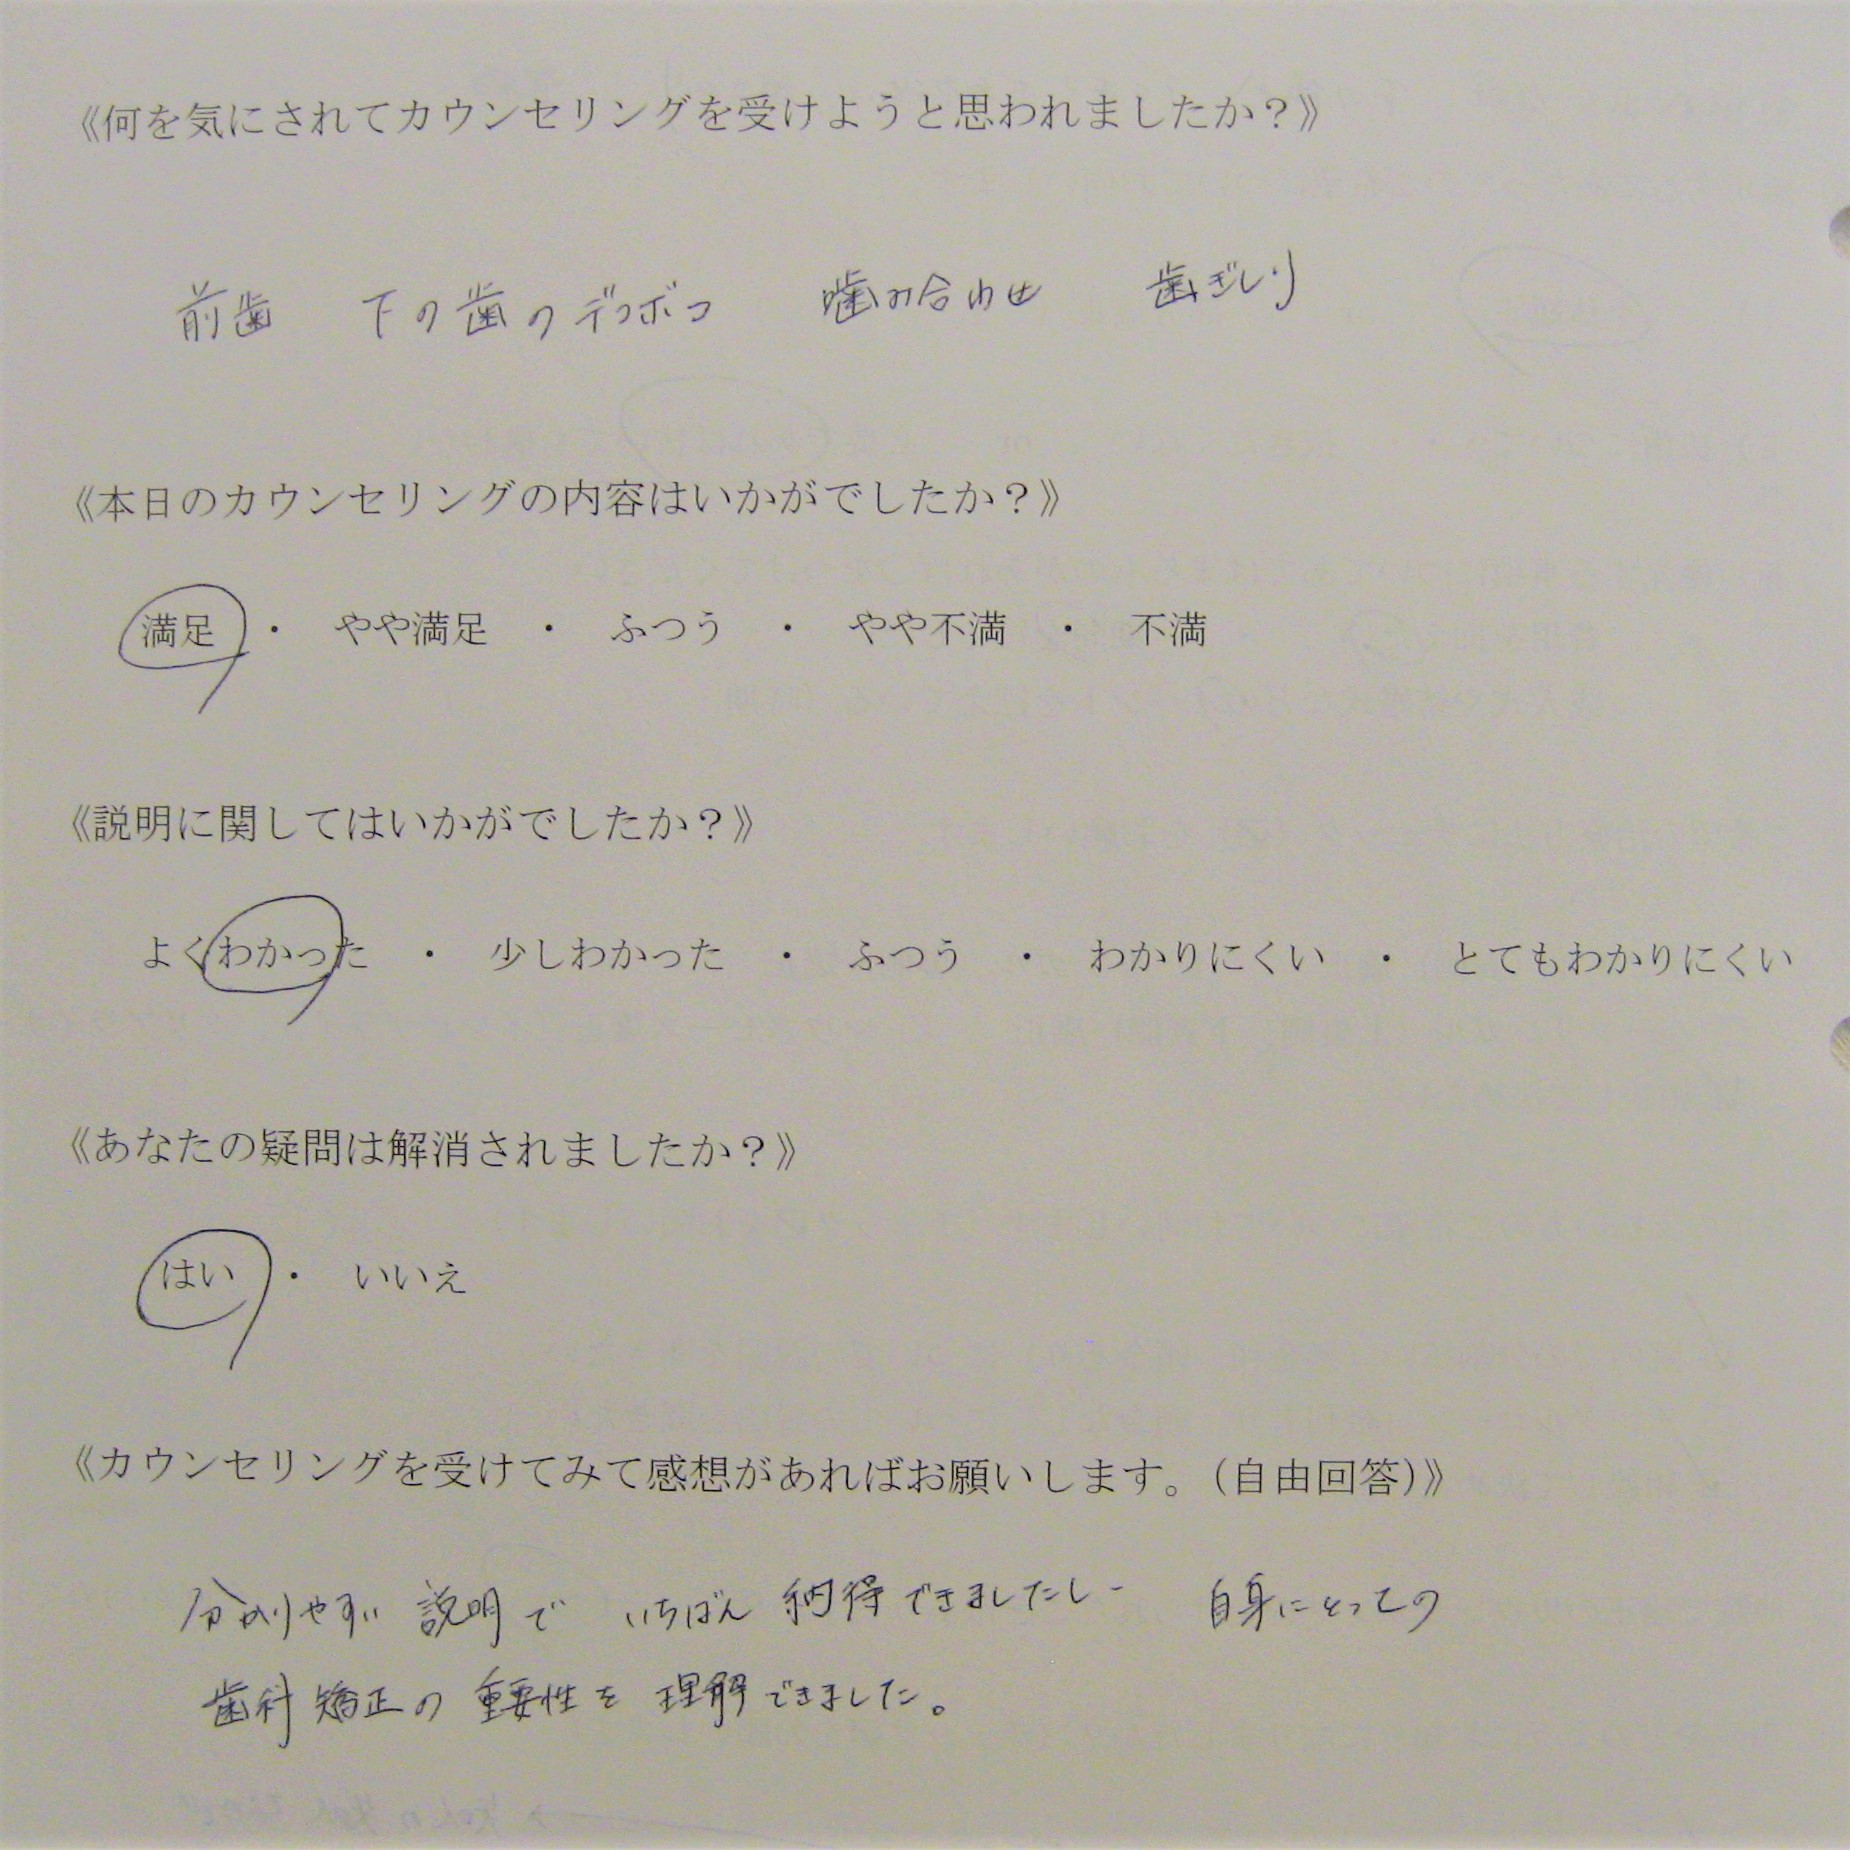 《何を気にされてカウンセリングを受けようと思われましたか？》
前歯　下の歯のデコボコ　噛み合わせ　歯ぎしり
《本日のカウンセリングの内容はいかがでしたか？》
満足　・　やや満足　・　ふつう　・　やや不満　・　不満
《説明に関してはいかがでしたか？》
よくわかった　・　少しわかった　・　ふつう　・　わかりにくい　・　とてもわかりにくい
《あなたの疑問は解消されましたか？》
はい　・　いいえ
《カウンセリングを受けてみて感想があればお願いします。（自由回答）》
分かりやすい説明で　いちばん納得できましたし　自身にとっての
歯科矯正の重要性を理解できました。